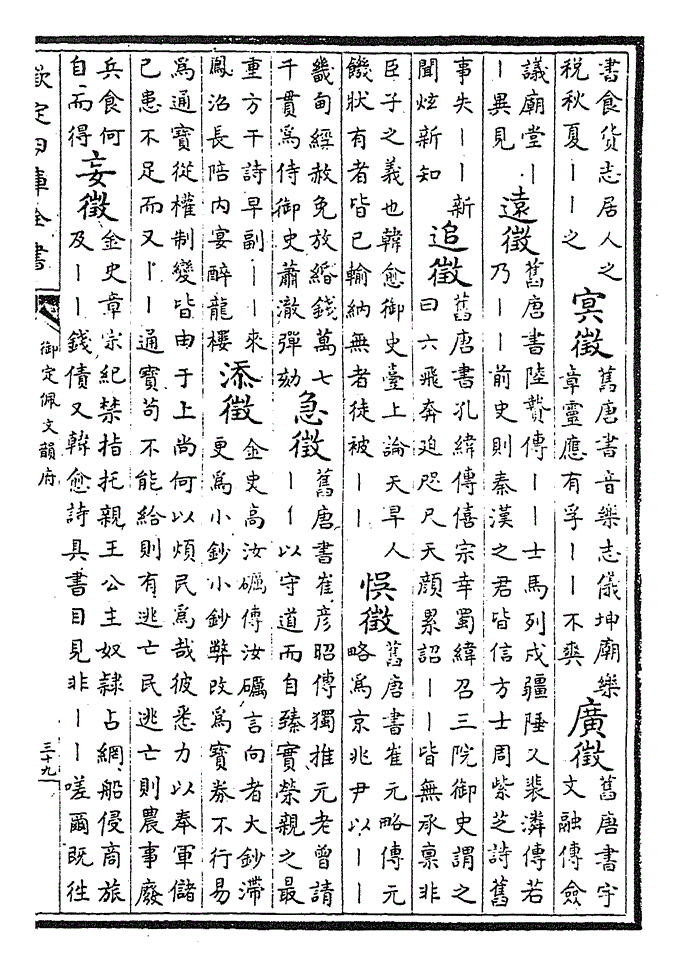 書食貨志居人之
税秋夏丨丨之
冥徴
舊唐書音樂志儀坤廟樂
章靈應有孚丨丨不爽
廣徴
舊唐書宇
文融傳僉
議廟堂丨
丨異見
遠徴
舊唐書陸贄傳丨丨士馬列戍疆陲又裴潾傳若
乃丨丨前史則秦漢之君皆信方士周紫芝詩舊
事失丨丨新
聞炫新知
追徴
舊唐書孔緯傳僖宗幸蜀緯召三院御史謂之
曰六飛奔迫咫尺天顔累詔丨丨皆無承禀非
臣子之義也韓愈御史臺上論天旱人
饑狀有者皆已輸納無者徒被丨丨
悞徴
舊唐書崔元略傳元
略爲京兆尹以丨丨
畿甸經赦免放緡錢萬七
千貫爲侍御史蕭澈彈劾
急徴
舊唐書崔彦昭傳獨推元老曾請
丨丨以守道而自臻實榮親之最
重方干詩早副丨丨來
鳳沼長陪内宴醉龍樓
添徴
金史高汝礪傳汝礪言向者大鈔滯
更爲小鈔小鈔弊改爲寳券不行易
爲通寳從權制變皆由于上尚何以煩民爲哉彼悉力以奉軍儲
已患不足而又丨丨通寳苟不能給則有逃亡民逃亡則農事廢
兵食何
自而得
妄徴
金史章宗紀禁指托親王公主奴隸占綱船侵商旅
及丨丨錢債又韓愈詩具書目見非丨丨嗟爾既往
欽定四庫全書
御定佩文韻府
三十九